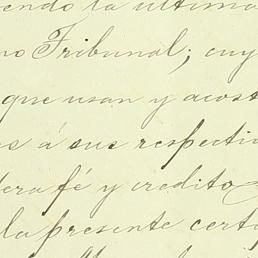 endo la ultima
no Tribunal; cuy
que usan y acost
s á sus respectiv
dera fé y credito
la presente certi